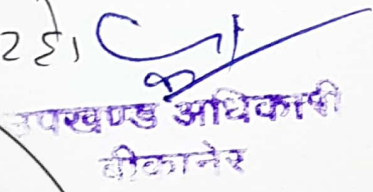 रहे।
उपखण्ड अधिकारी
बीकानेर